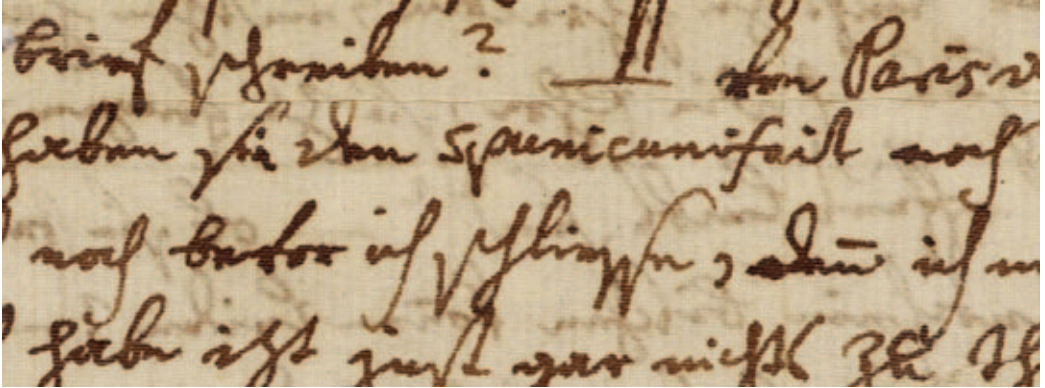 brief schreiben? von Paris
haben sie den spunicunifait noch
noch bevor ich schliesse, den̄ ich
habe izt just gar nichts zu